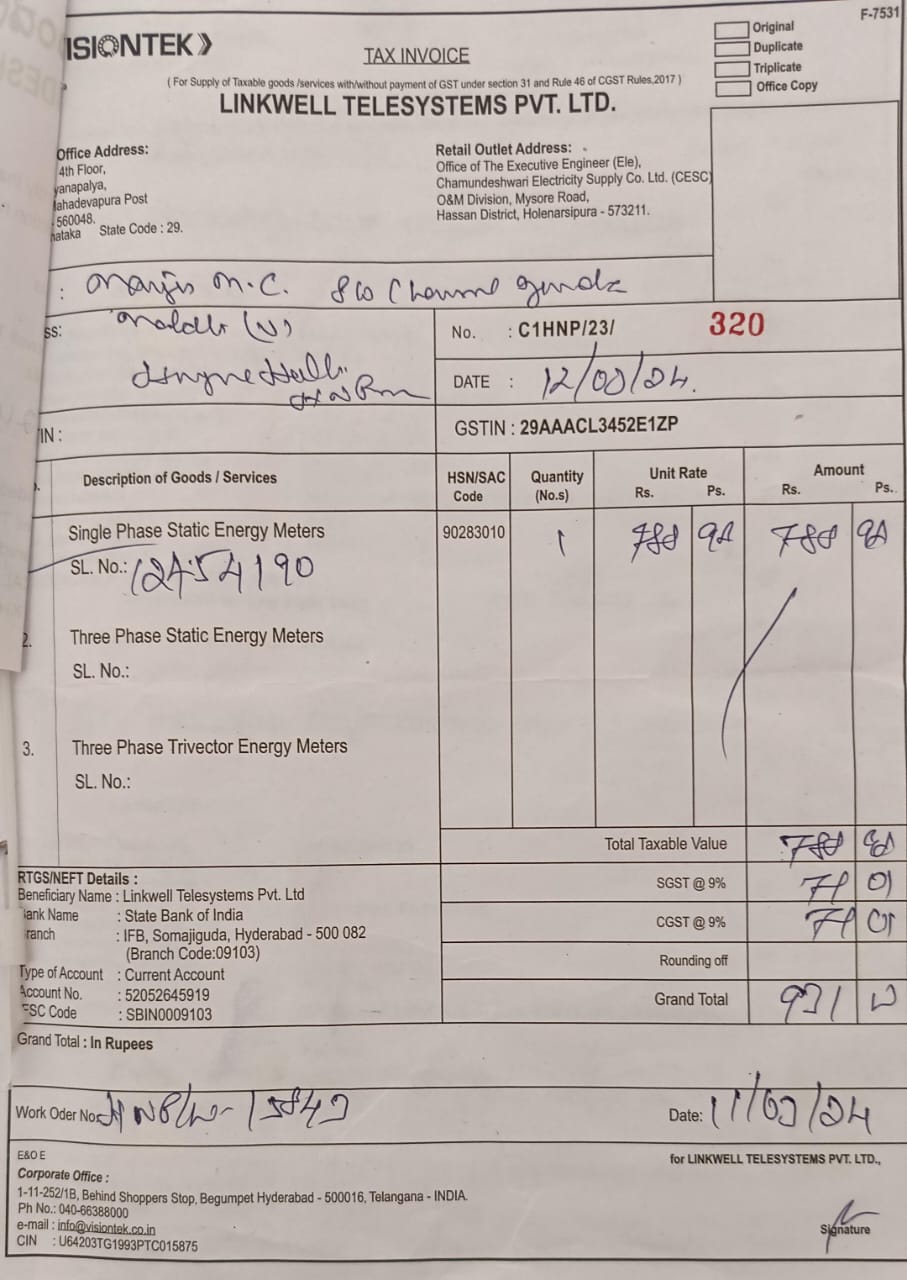 F-7531
ISIONTEK
Original
Duplicate
Triplicate
Office Copy
TAX INVOICE
( For Supply of Taxable goods /services with/without payment of GST under section 31 and Rule 46 of CGST Rules,2017 )
LINKWELL TELESYSTEMS PVT. LTD.
Office Address:
4th Floor,
yanapalya,
ahadevapura Post
560048.
nataka State Code : 29.
Retail Outlet Address:
Office of The Executive Engineer (Ele),
Chamundeshwari Electricity Supply Co. Ltd. (CESC)
O&M Division, Mysore Road,
Hassan District, Holenarsipura - 573211.
: M.C.
ss: (V)
No. : C1HNP/23/ 320
DATE : 12/03/24.
IN :
GSTIN : 29AAACL3452E1ZP
Description of Goods / Services
HSN/SAC Code
Quantity (No.s)
Unit Rate
Rs. Ps.
Amount
Rs. Ps.
Single Phase Static Energy Meters 90283010 1 788 98 788 98
SL. No.: 12454190
2. Three Phase Static Energy Meters
SL. No.:
3. Three Phase Trivector Energy Meters
SL. No.:
Total Taxable Value 788 98
SGST @ 9% 71 01
CGST @ 9% 71 01
Rounding off
Grand Total 931 00
RTGS/NEFT Details :
Beneficiary Name : Linkwell Telesystems Pvt. Ltd
ank Name : State Bank of India
ranch : IFB, Somajiguda, Hyderabad - 500 082
(Branch Code:09103)
Type of Account : Current Account
Account No. : 52052645919
FSC Code : SBIN0009103
Grand Total : In Rupees
Work Oder No. Date: 11/03/24
E&O E
for LINKWELL TELESYSTEMS PVT. LTD.,
Corporate Office :
1-11-252/1B, Behind Shoppers Stop, Begumpet Hyderabad - 500016, Telangana - INDIA.
Ph No.: 040-66388000
e-mail : info@visiontek.co.in
CIN : U64203TG1993PTC015875
Signature